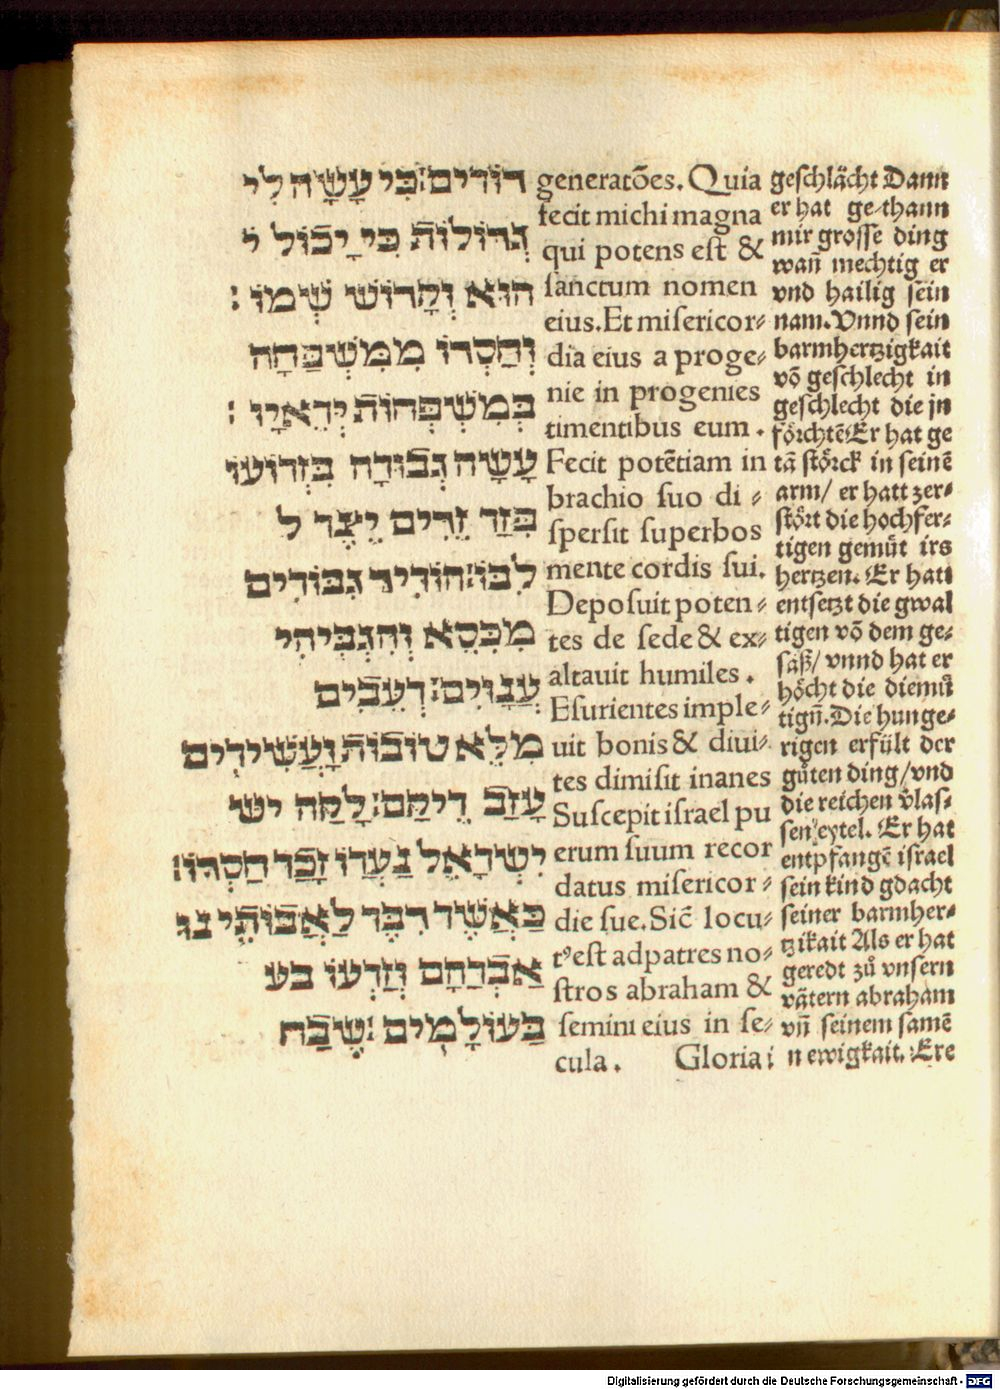 דורים׃כִּי עָשָׂה לִי
גְדוֹלוֹת כִּי יָכוֹל י
הוּא וְקָדוֹשׁ שְׁמוֹ :
וְחַסְדוֹ מִמִּשְׁפַּחָה
בְּמִשְׁפְּחוֹת
עָשָׂה גְבוּרָה בִּזְרוֹעוֹ
פִּזַר זֵדִים יֵצֶר ל
לִבּוֹ׃הוֹרִיד גִבּוֹרִים
מִכִּסֵא וְהִגְבִּיהִי
עֲנָוִים׃רְעֵבִים
מִלֵא טוֹבוֹת וָעֲשִׁירִים
עָזַב רֵיקָם׃לָקַח יש
יִשְׂרָאֵל נַעְרוֹ זָכַר חַסְדּוֹ׃
כַּאֲשֶׁר דִבֶּר לַאֲבוֹתֵי נו
אַבְרָהָם וְזַרְעוֹ בע
בַּעוֹלָמִים׃שֶׁבַח
generatōes. Quia
fecit michi magna
qui potens est &
sanctum nomen
eius. Et misericor-
dia eius a proge-
nie in progenies
timentibus eum.
Fecit potētiam in
brachio suo di-
spersit superbos
mente cordis sui.
Deposuit poten-
tes de sede & ex-
altauit humiles.
Esurientes imple-
uit bonis & diui-
tes dimisit inanes
Suscepit israel pu
erum suum recor
datus misericor-
die sue. Sic̄ locu-
tꝰest ad patres no-
stros abraham &
semini eius in se-
cula. Gloria i
geschlächt Dann
er hat ge-thann
mir grosse ding
wañ mechtig er
vnd hailig sein
nam. Vnnd sein
barmhertzigkait
võ geschlecht in
geschlecht die jn
förchtē Er hat ge
tã störck in seinē
arm/ er hatt zer-
stört die hochfer-
tigen gemüt irs
hertzen. Er hatt
entsetzt die gwal
tigen võ dem ge-
säß/ vnnd hat er
höcht die diemü
tigñ. Die hunge-
rigen erfült der
gůten ding/vnd
die reichen v̄las-
sen eytel. Er hat
entpfangē israel
sein kind gdacht
seiner barmher-
tzikait Als er hat
geredt zů vnsern
vätern abraham
vñ seinem samē
n ewigkait. Ere
Digitalisierung gefördert durch die Deutsche Forschungsgemeinschaft - DFG